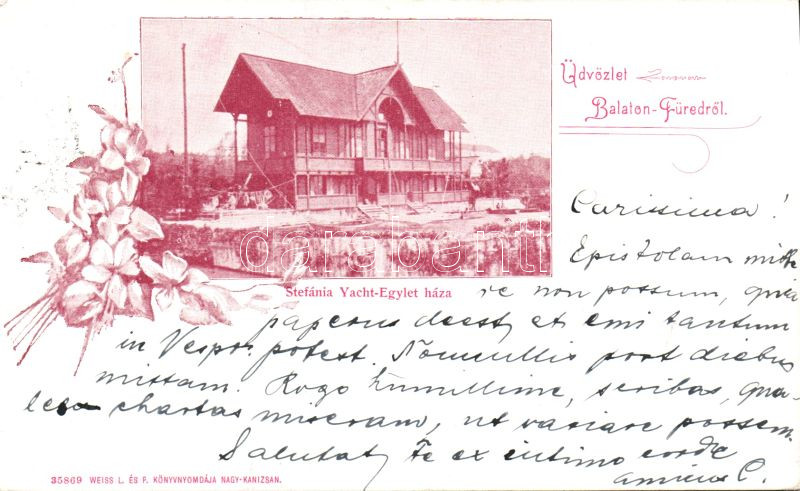 Üdvözlet
Balaton-Füredről.
darabanth
Stefánia Yacht-Egylet háza
Carissima!
Epistolam mitte
re non possum, quia
papcrus deest, et emi tantum
in Vespr. potest. Nonnullis post diebus
mittam. Rogo humillime, scribas, qua-
les chartas miseram, ut variare possem.
Salutat Te ex intimo corde
amicus C.
35869 WEISS L. ÉS F. KÖNYVNYOMDÁJA NAGY-KANIZSAN.